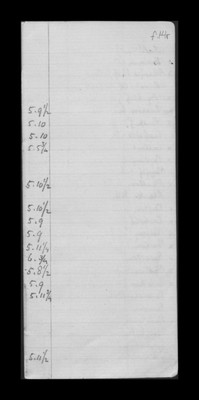 5.9½
5.10
5.10
5.5¾
5.10½
5.10½
5.9
5.9
5.11½
6.¾
5.8½
5.9
5.11¾
5.11½